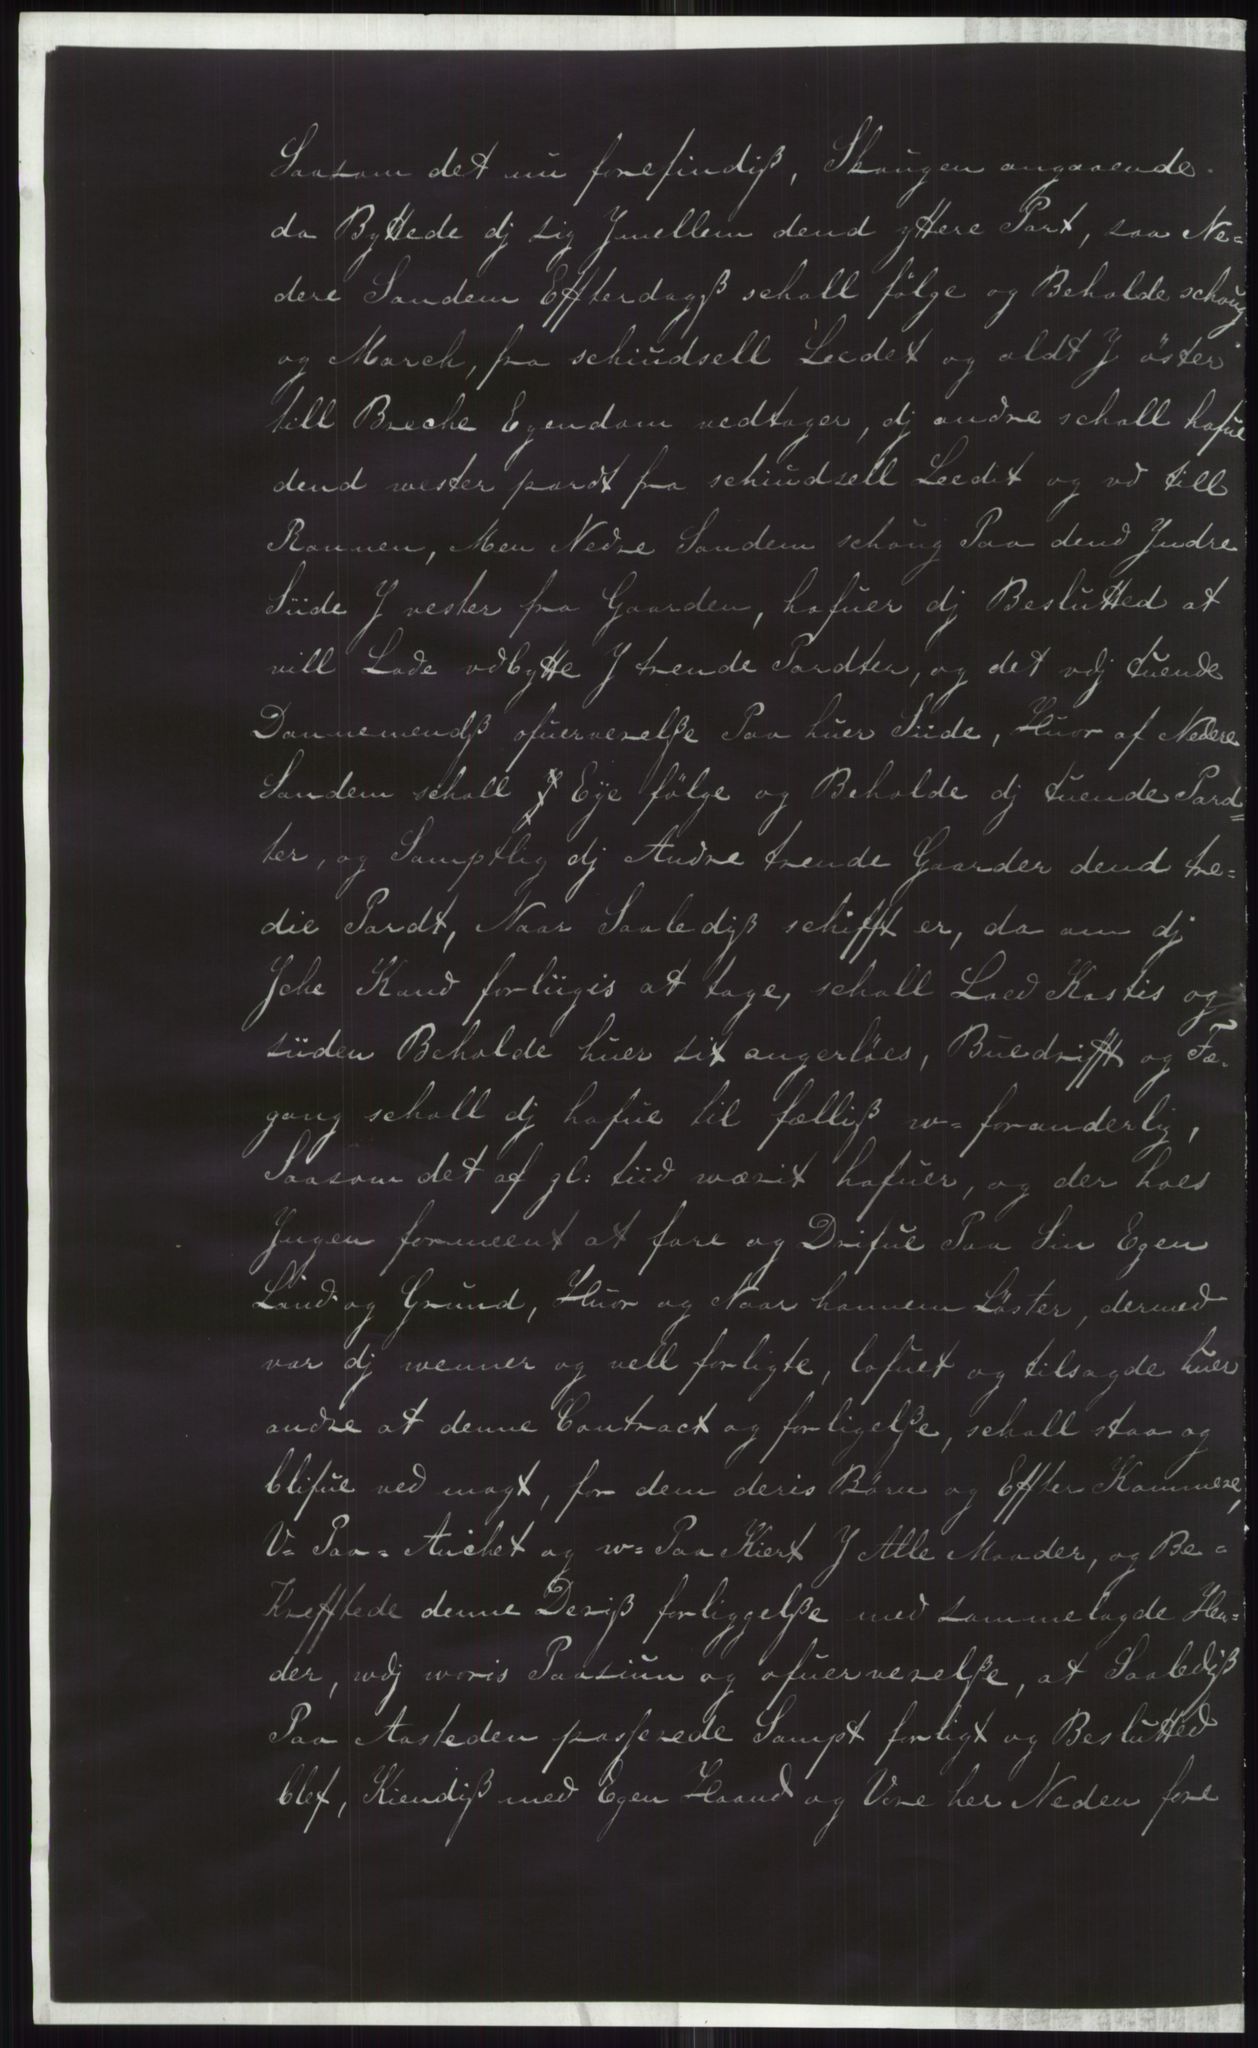 Saasom det nu forefindiß, Skougen angaaende
da Byttede dj sig Jmellem dend yttere Part, saa Ne=
dere Sandem Effterdagß schall fölge og Beholde schoug
og March, fra schiudsell Leedet og aldt J öster
till Breche Egendom vedtager, dj andre schall hafue
dend wester pardt fra schiudsell Leedit og vd till
Rannen, Men Nedre Sandem schoug Paa dend Jndre
Siide J vester fra Gaarden, hafuer dj Beslutted at
vill Lade vdbytte J trende Pardter, og det vdj tuende
Dannemendß ofuerverelße Paa huer Siide, Huor af Nedere
Sandem schall Eÿe fölge og Beholde dj tuende Pard=
ter, og Samptlig dj Andre trende Gaarder dend tre=
die Pardt, Naar Saaledyß schifft er, da om dj
Jche Kand forliigis at tage, schall Loed Kastis og
siiden Beholde huer sit angerlöes, Buedrifft og Fæ=
gang schall dj hafue til fælliß w=foranderlig,
Saasom det af gl: tiid wærit hafuer, og der hoes
Jngen formeent at fare og Drifue Paa Sin Egen
Land og Grund, Huor og Naar hannem Löster, dermed
var dj wenner og vell forligte, lofuet og tilsagde huer
andre at denne Contract og forligelße, schall staa og
blifue ved magt, for dem deris Börn og Effter Kommere,
V=Paa=Anchet og w=Paa Kiert J Alle Maader, og Be=
Kreffttede denne Deriß forliggelße med sammelagde Hen=
der, vdj woris Paasiun og ofuerverelße, at Saaledyß
Paa Aasteden passerede Sampt forligt og Besluttед
blef, Kiendiß med Egen Haand og Vore her Neden fore